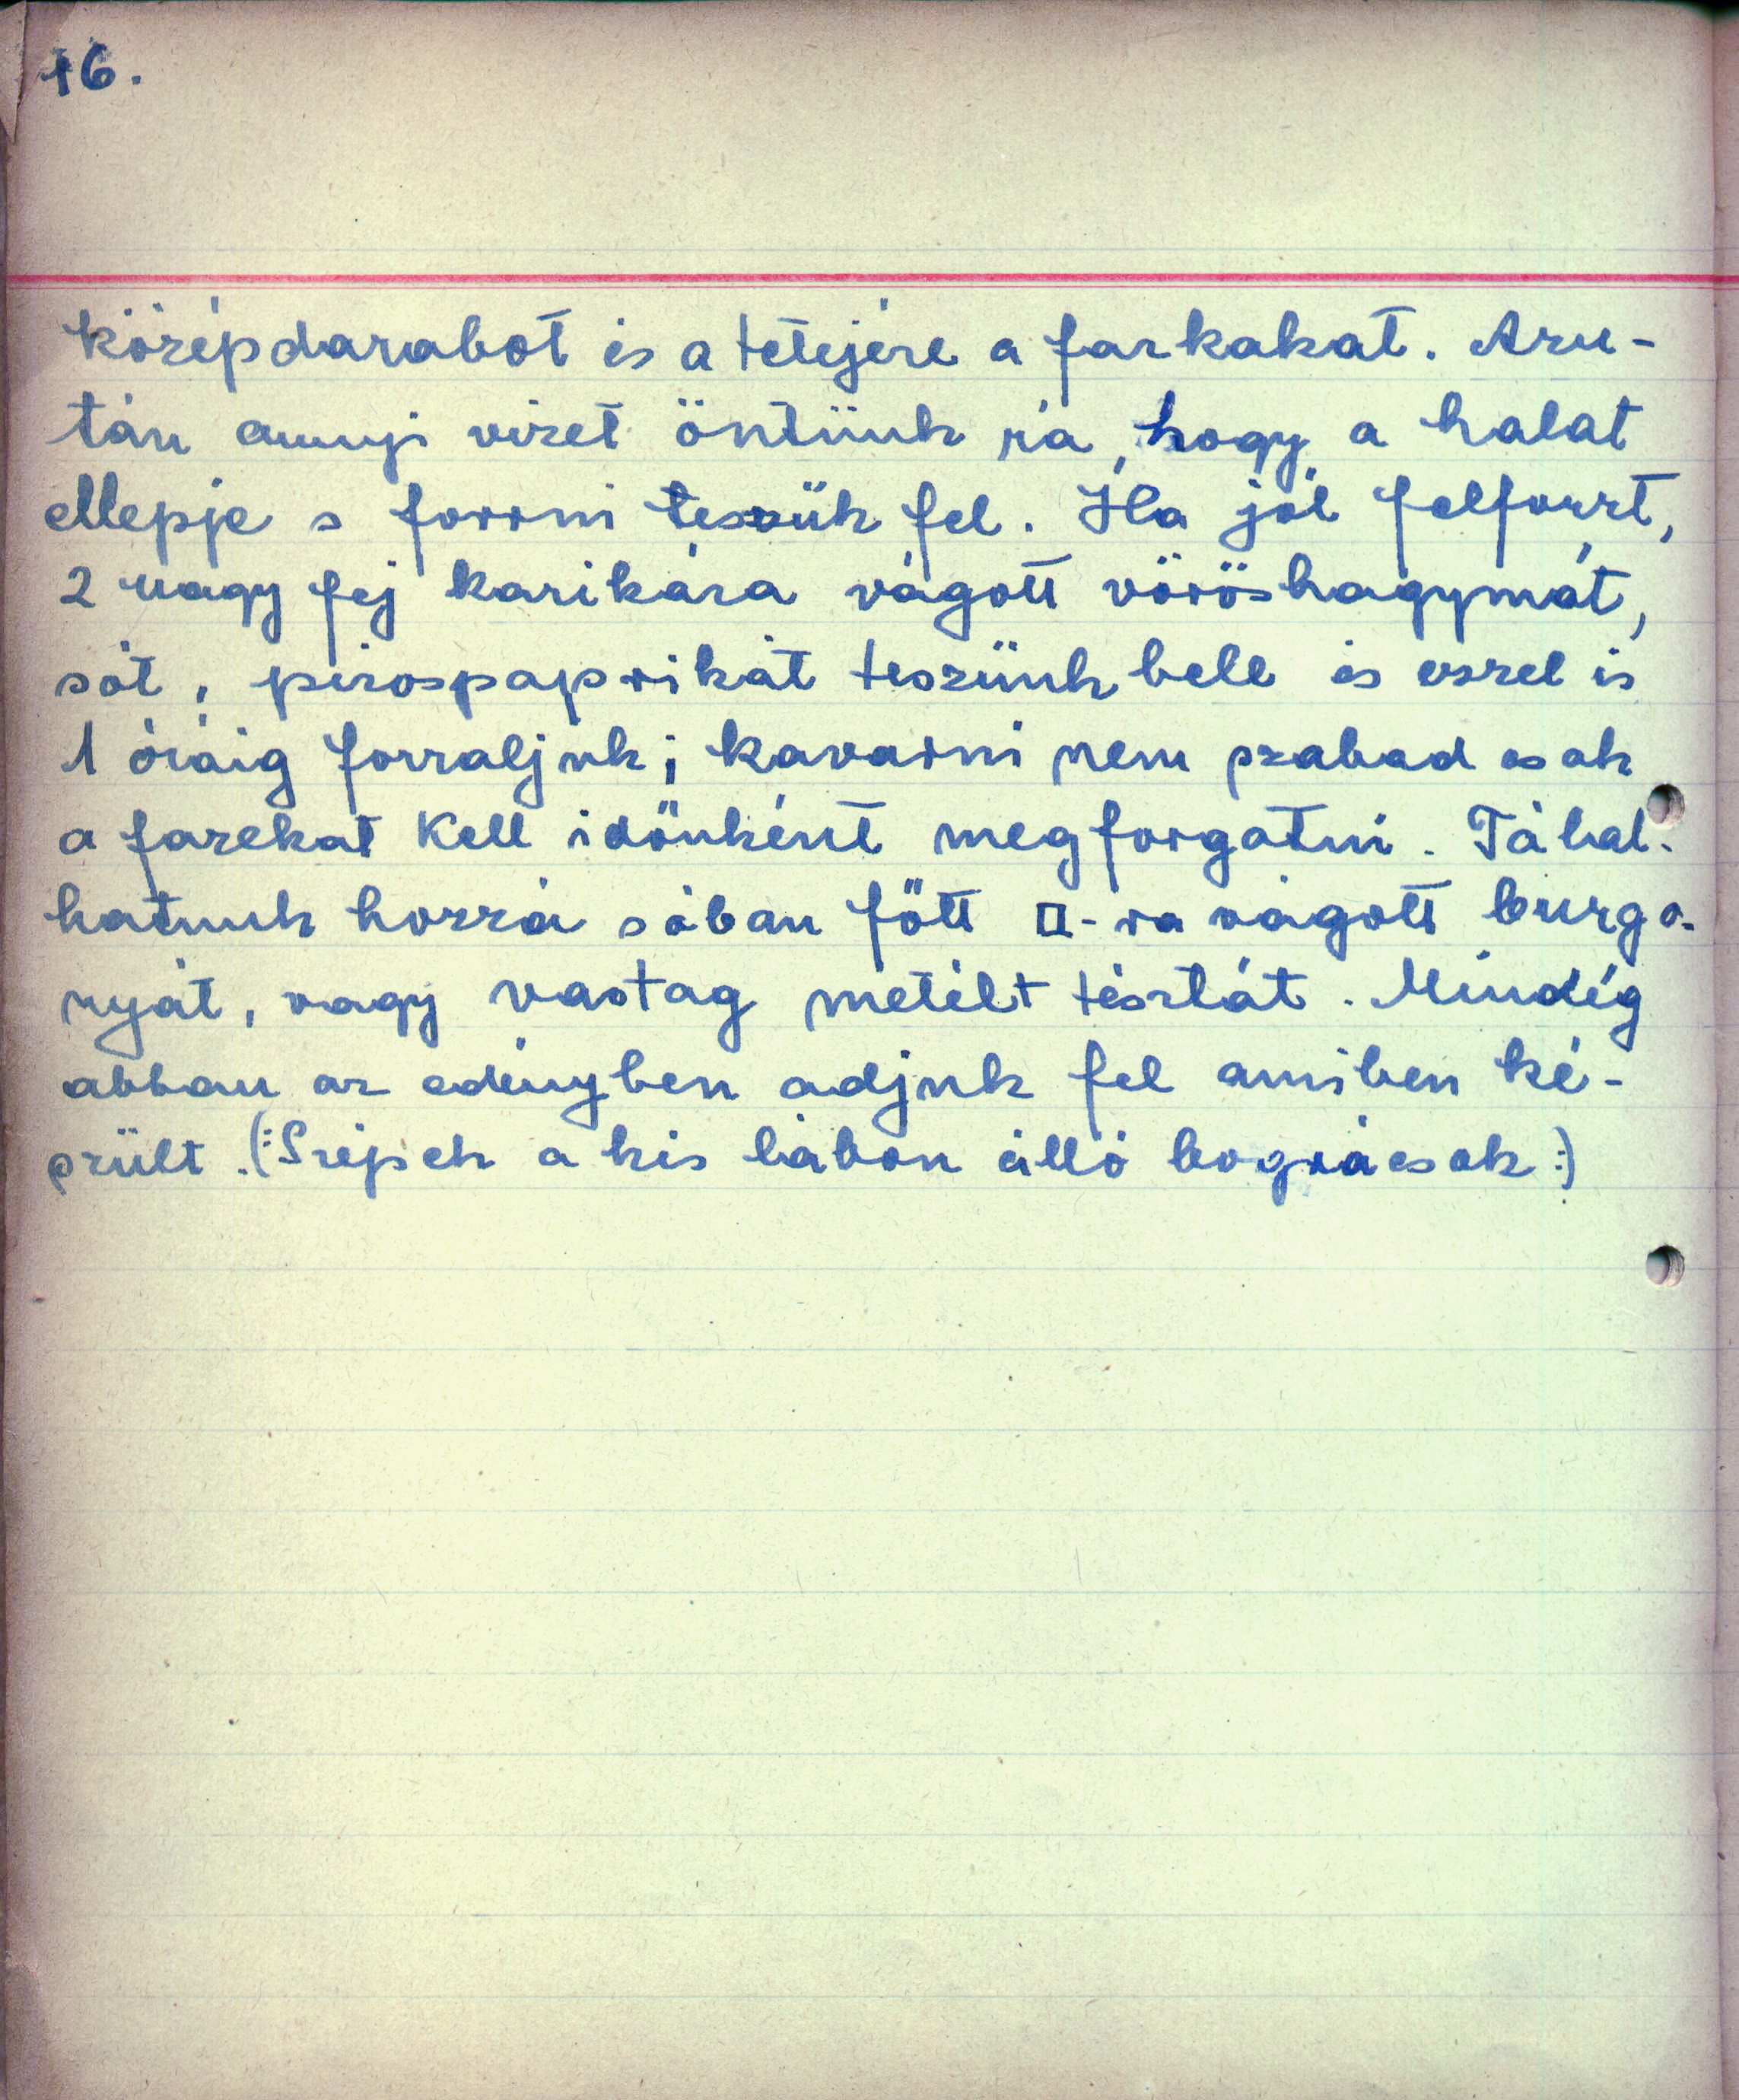 16.
középdarabot és a tetejére a farkakat. Azu-
tán annyi vizet öntünk rá, hogy a halat
ellepje s forrni teszük fel. Ha jól felforrt,
2 nagy fej karikára vágott vöröshagymát,
sót, pirospaprikát teszünk bele és ezzel is
1 óráig forraljuk; kavarni nem szabad csak
a fazekat kell időnként megforgatni. Tálal-
hatunk hozzá sóban főtt □-ra vágott burgo-
nyát, vagy vastag metélt tésztát. Mindíg
abban az edényben adjuk fel amiben ké-
szült. (:Szépek a kis lábon álló bográcsok:)